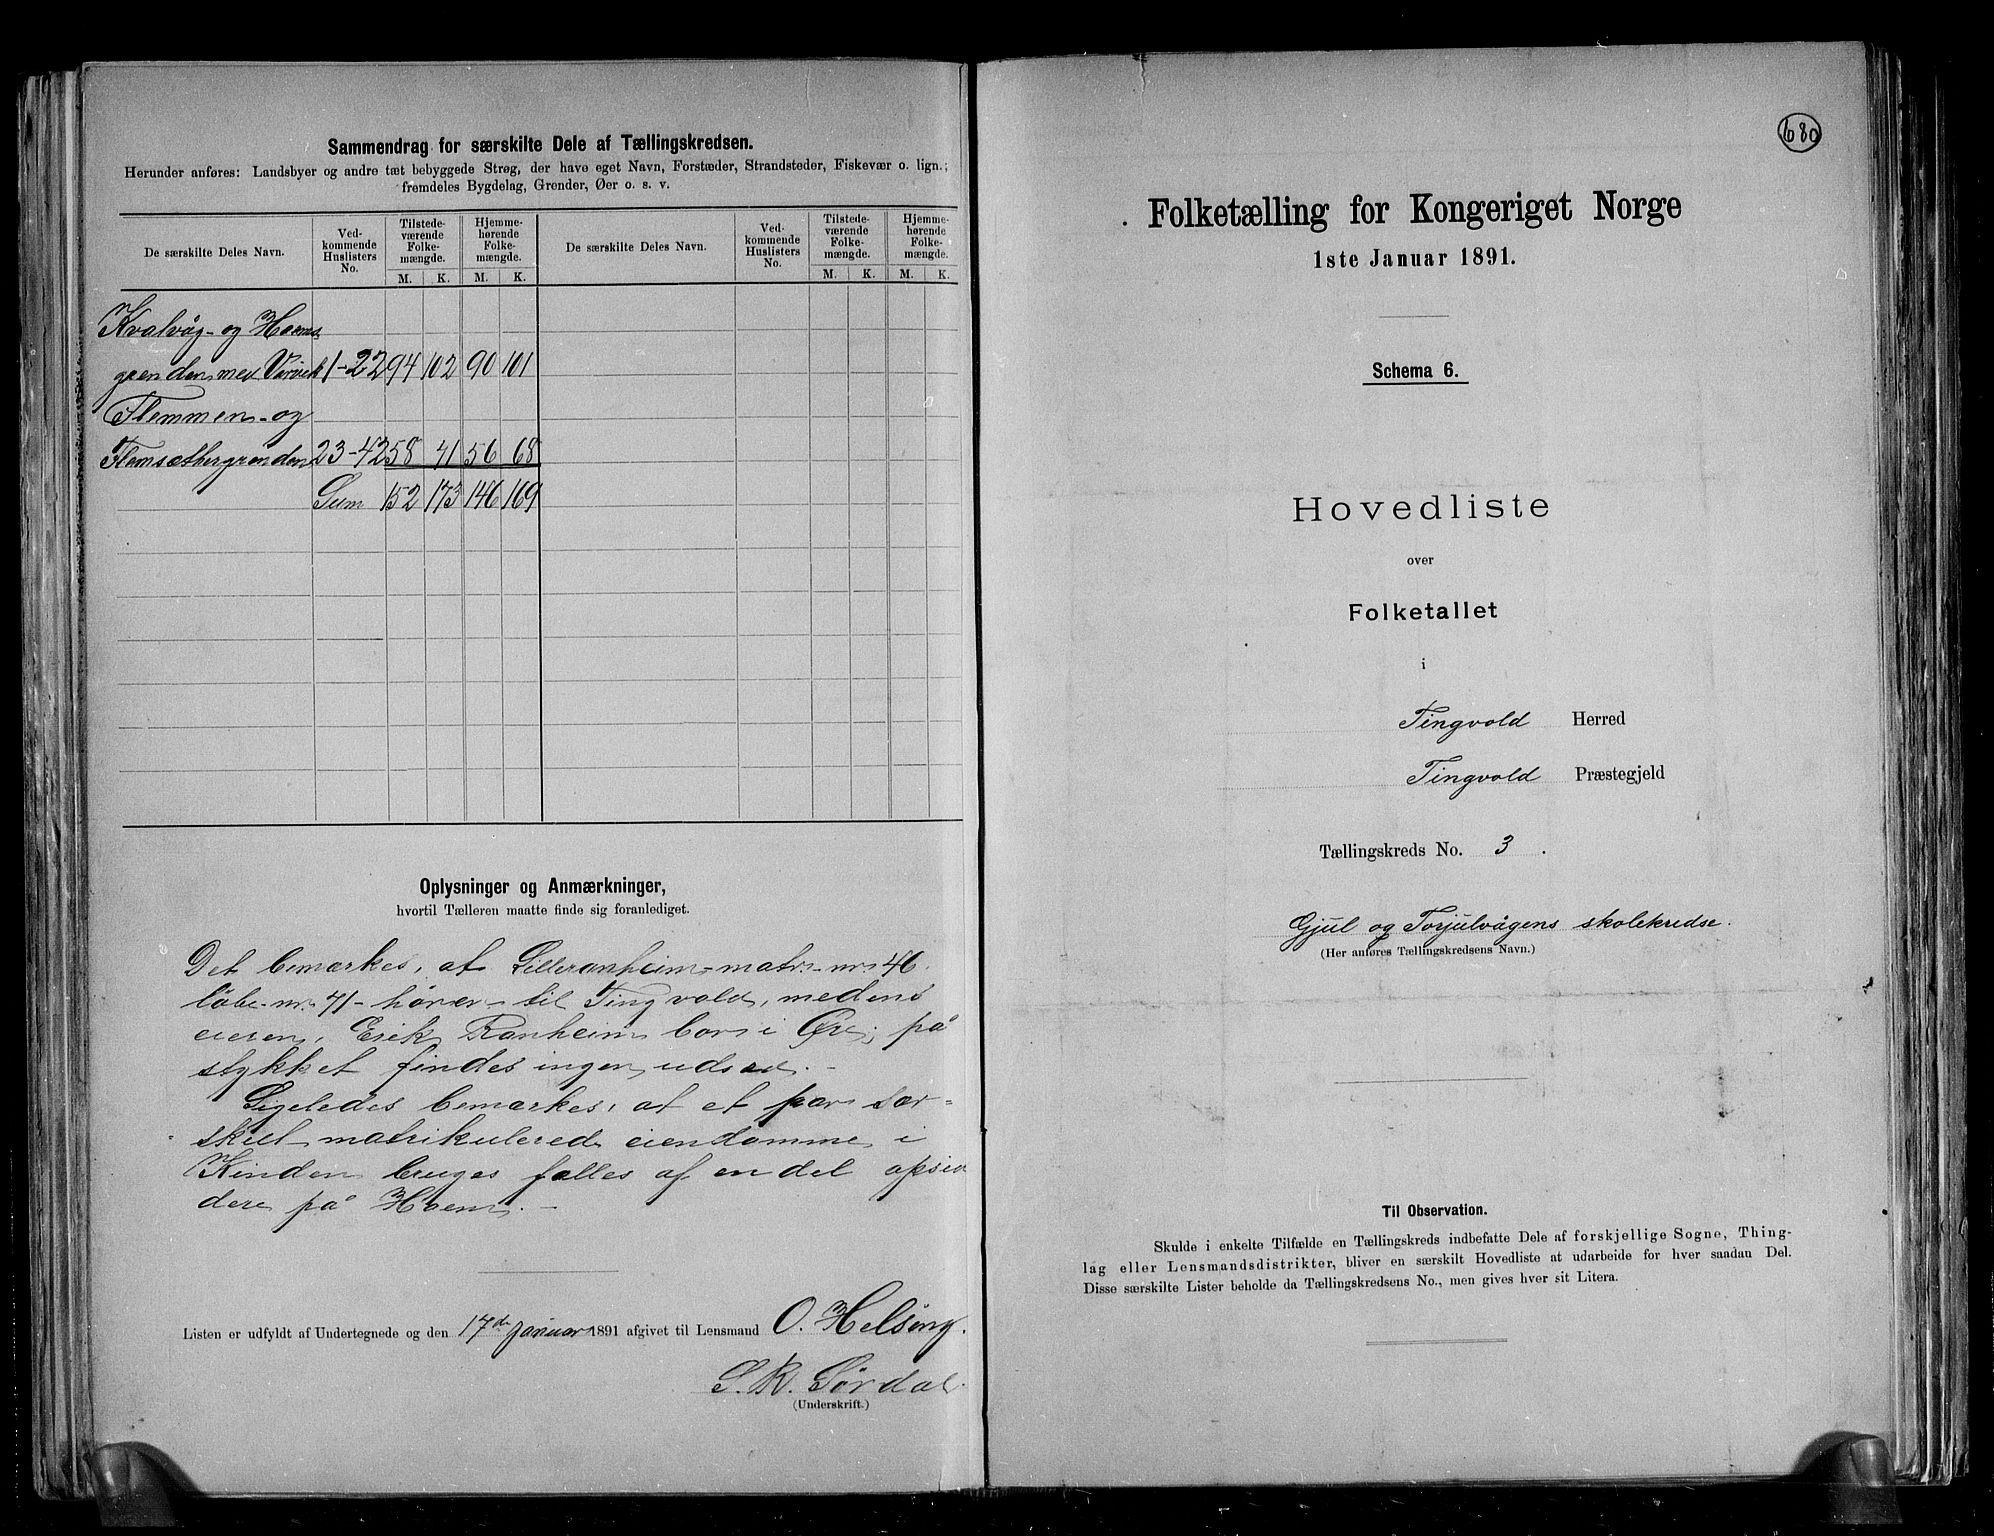 Sammendrag for særskilte Dele af Tællingskredsen.
Herunder anføres: Landsbyer og andre tæt bebyggede Strøg, der have eget Navn, Forstæder, Strandsteder, Fiskevær o. lign.;
fremdeles Bygdelag, Grender, Øer o. s. v.
De særskilte Deles Navn. Ved-kommende Huslisters No. Tilstede-værende Folke-mængde. Hjemme-hørende Folke-mængde. De særskilte Deles Navn. Ved-kommende Huslisters No. Tilstede-værende Folke-mængde. Hjemme-hørende Folke-mængde.
M. K. M. K. M. K. M. K.
Kvalvåg- og Hoems
grenden med Vervik 1-22 94 102 90 101
Flemmen- og
Flemsæthergrenden 23-42 58 71 56 68
Sum 152 173 146 169
Oplysninger og Anmærkninger,
hvortil Tælleren maatte finde sig foranlediget.
Det bemærkes, at Lilleranheim-matr.-nr. 46
løbe-nr. 71-hører-til Tingvold, medens
eieren, Erik Ranheim bor i Øre; på
stykket findes ingen udsæd.-
Ligeledes bemærkes, at et par sær-
skilt matrikulerede eiendomme i
Kinden bruges fælles af en del opsid
dere på Hoem.-
Listen er udfyldt af Undertegnede og den 17de januar 1891 afgivet til Lensmand O. Helsing.
S. R. Sørdal.
(Underskrift.)
680
Folketælling for Kongeriget Norge
1ste Januar 1891.
Schema 6.
Hovedliste
over
Folketallet
i
Tingvold Herred
Tingvold Præstegjeld
Tællingskreds No. 3.
Gjul og Torjulvågens skolekredse.
(Her anføres Tællingskredsens Navn.)
Til Observation.
Skulde i enkelte Tilfælde en Tællingskreds indbefatte Dele af forskjellige Sogne, Thing-
lag eller Lensmandsdistrikter, bliver en særskilt Hovedliste at udarbeide for hver saadan Del.
Disse særskilte Lister beholde da Tællingskredsens No., men gives hver sit Litera.